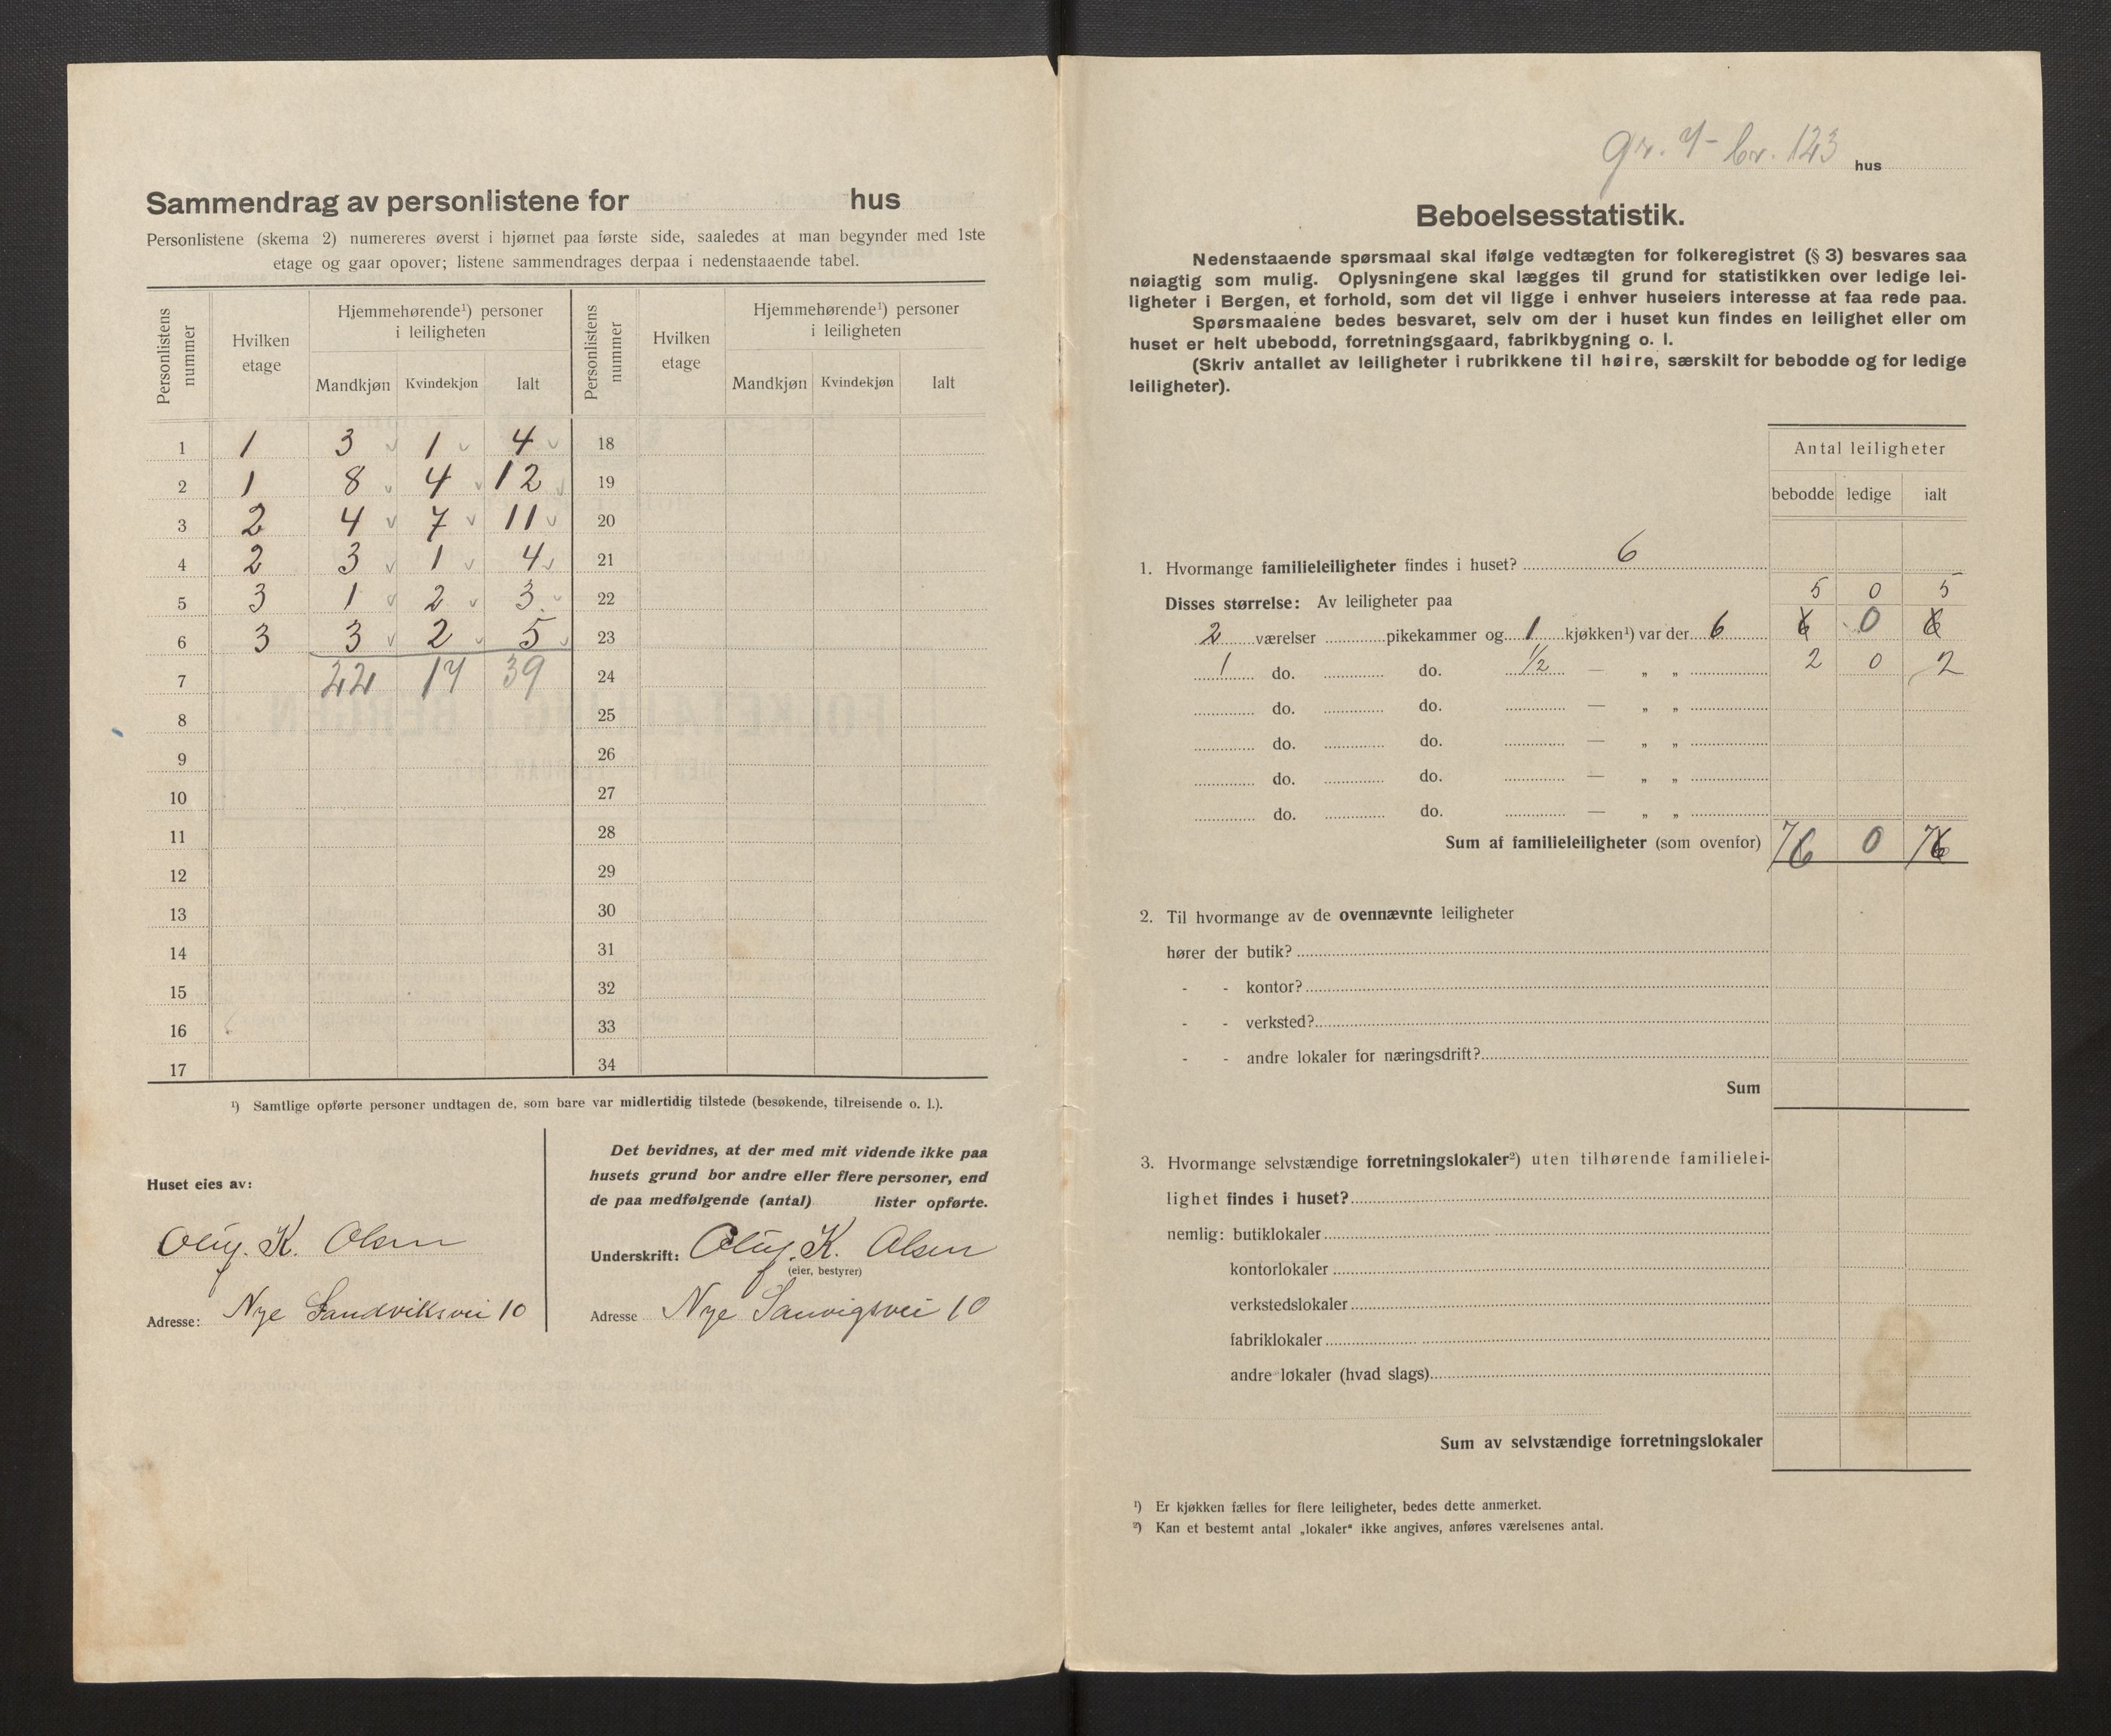 Sammendrag av personlistene for hus
Personlistene (skema 2) numereres øverst i hjørnet paa første side, saaledes at man begynder med 1ste
etage og gaar opover; listene sammendrages derpaa i nedenstaaende tabel.
Personlistens nummer
Hvilken etage
Hjemmehørende¹) personer i leiligheten
Mandkjøn Kvindekjøn Ialt
Personlistens nummer
Hvilken etage
Hjemmehørende¹) personer i leiligheten
Mandkjøn Kvindekjøn Ialt
1 1 3 1 4 18
2 1 8 4 12 19
3 2 4 7 11 20
4 2 3 1 4 21
5 3 1 2 3 22
6 3 3 2 5 23
7 22 17 39 24
8 25
9 26
10 27
11 28
12 29
13 30
14 31
15 32
16 33
17 34
¹) Samtlige opførte personer undtagen de, som bare var midlertidig tilstede (besøkende, tilreisende o. l.).
Huset eies av:
Oluf. K. Olsen
Adresse: Nye Sandviksvei 10
Det bevidnes, at der med mit vidende ikke paa
husets grund bor andre eller flere personer, end
de paa medfølgende (antal) lister opførte.
Underskrift: Oluf. K. Olsen
(eier, bestyrer)
Adresse Nye Sanvigsvei 10
gr. 7- br. 123 hus
Beboelsesstatistik.
Nedenstaaende spørsmaal skal ifølge vedtægten for folkeregistret (§ 3) besvares saa
nøiagtig som mulig. Oplysningene skal lægges til grund for statistikken over ledige lei-
ligheter i Bergen, et forhold, som det vil ligge i enhver huseiers interesse at faa rede paa.
Spørsmaalene bedes besvaret, selv om der i huset kun findes en leilighet eller om
huset er helt ubebodd, forretningsgaard, fabrikbygning o. l.
(Skriv antallet av leiligheter i rubrikkene til høire, særskilt for bebodde og for ledige
leiligheter).
Antal leiligheter
bebodde ledige ialt
1. Hvormange familieleiligheter findes i huset? 6
Disses størrelse: Av leiligheter paa 5 0 5
2 værelser pikekammer og 1 kjøkken¹) var der 6 6 0 6
1 do. do. 1/2 — " " 2 0 2
do. do. — " "
do. do. — " "
do. do. — " "
do. do. — " "
Sum af familieleiligheter (som ovenfor) 7 6 0 7 6
2. Til hvormange av de ovennævnte leiligheter
hører der butik?
- - kontor?
- - verksted?
- - andre lokaler for næringsdrift?
Sum
3. Hvormange selvstændige forretningslokaler²) uten tilhørende familielei-
lighet findes i huset?
nemlig: butiklokaler
kontorlokaler
verkstedslokaler
fabriklokaler
andre lokaler (hvad slags)
Sum av selvstændige forretningslokaler
¹) Er kjøkken fælles for flere leiligheter, bedes dette anmerket.
²) Kan et bestemt antal „lokaler“ ikke angives, anføres værelsenes antal.